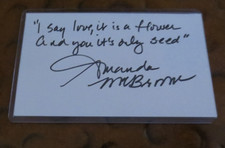 "I say love, it is a flower
And you it's only seed"
Amanda
McBroom